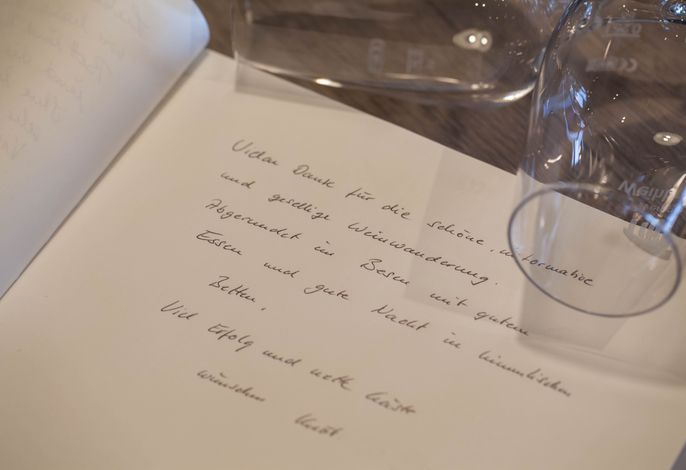 Vielen Dank für die schöne, informative
und gesellige Weinwanderung.
Abgerundet im Besen mit gutem
Essen und gute Nacht in himmlischen
Betten.
Viel Erfolg und nette Gäste
wünschen